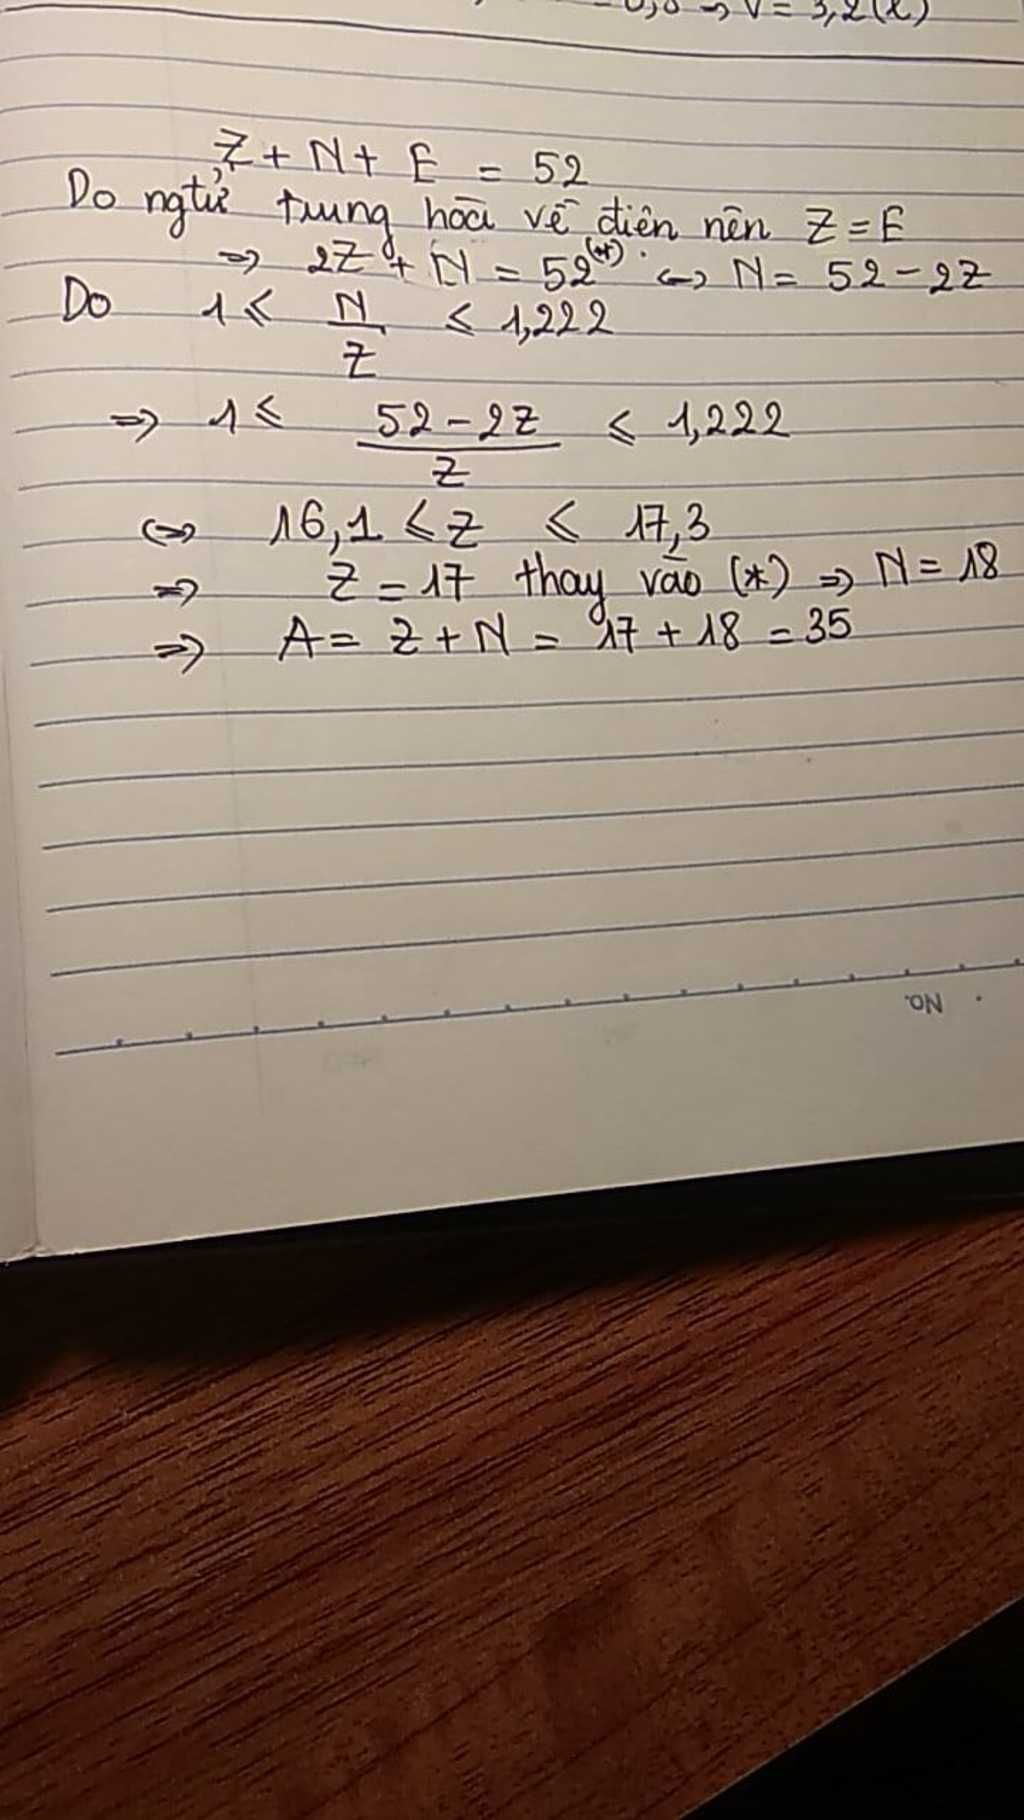 V = 3,2 (l)
Z + N + E = 52
Do ngtử trung hoà về điên nên Z = E
=> 2Z + N = 52 (*) <=> N = 52 - 2Z
Do 1 ≤ N/Z ≤ 1,222
=> 1 ≤ (52 - 2Z)/Z ≤ 1,222
<=> 16,1 ≤ Z ≤ 17,3
=> Z = 17 thay vào (*) => N = 18
=> A = Z + N = 17 + 18 = 35
No.